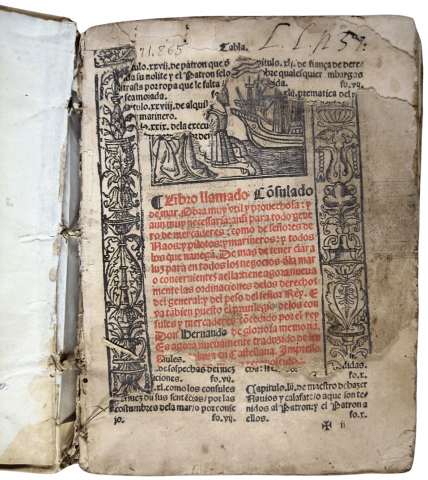 71.865
L. L. n 5
Tabla.
tulo.xxvii.de patron que
da su nolite y el Patron
trasta por ropa que le falta
seamojada.
tulo.xxviii.de
marinero.
.xxix.dela
pitulo.xlj.de fiança de
bre qualesquier
fo.vij.
prematica del
fo.vij.
Libro llamado Cōsulado
de mar. Obra muy vtil y prouechosa: y
aun muy necessaria: assi para todo gene
ro de mercaderes: como de señores de
Naos: y pilotos: y marineros: y todos
los que nauegā. De mas de tener clara
luz para en todos los negocios del mar
o concernientes a ella: tiene agora nueua
mente las ordinaciones delos derechos
del general: y del peso del señor Rey. E
va tābien puesto el priuilegio delos con
sules y mercaderes: cōcedido por el rey
Don Hernando de gloriosa memoria.
Es agora nueuamente traduzido de
en Castellano. Impresso
de sospechas de
ciones. fo.vij.
.xl.como los consules
sus sentēcias: por las
costumbres del mar o por
fo.x.
Capitulo.lii.de maestro de hazer
Nauios y calafat: o aque son te-
nidos al Patron: y el Patron a
ellos. fo.x.
✠ ij